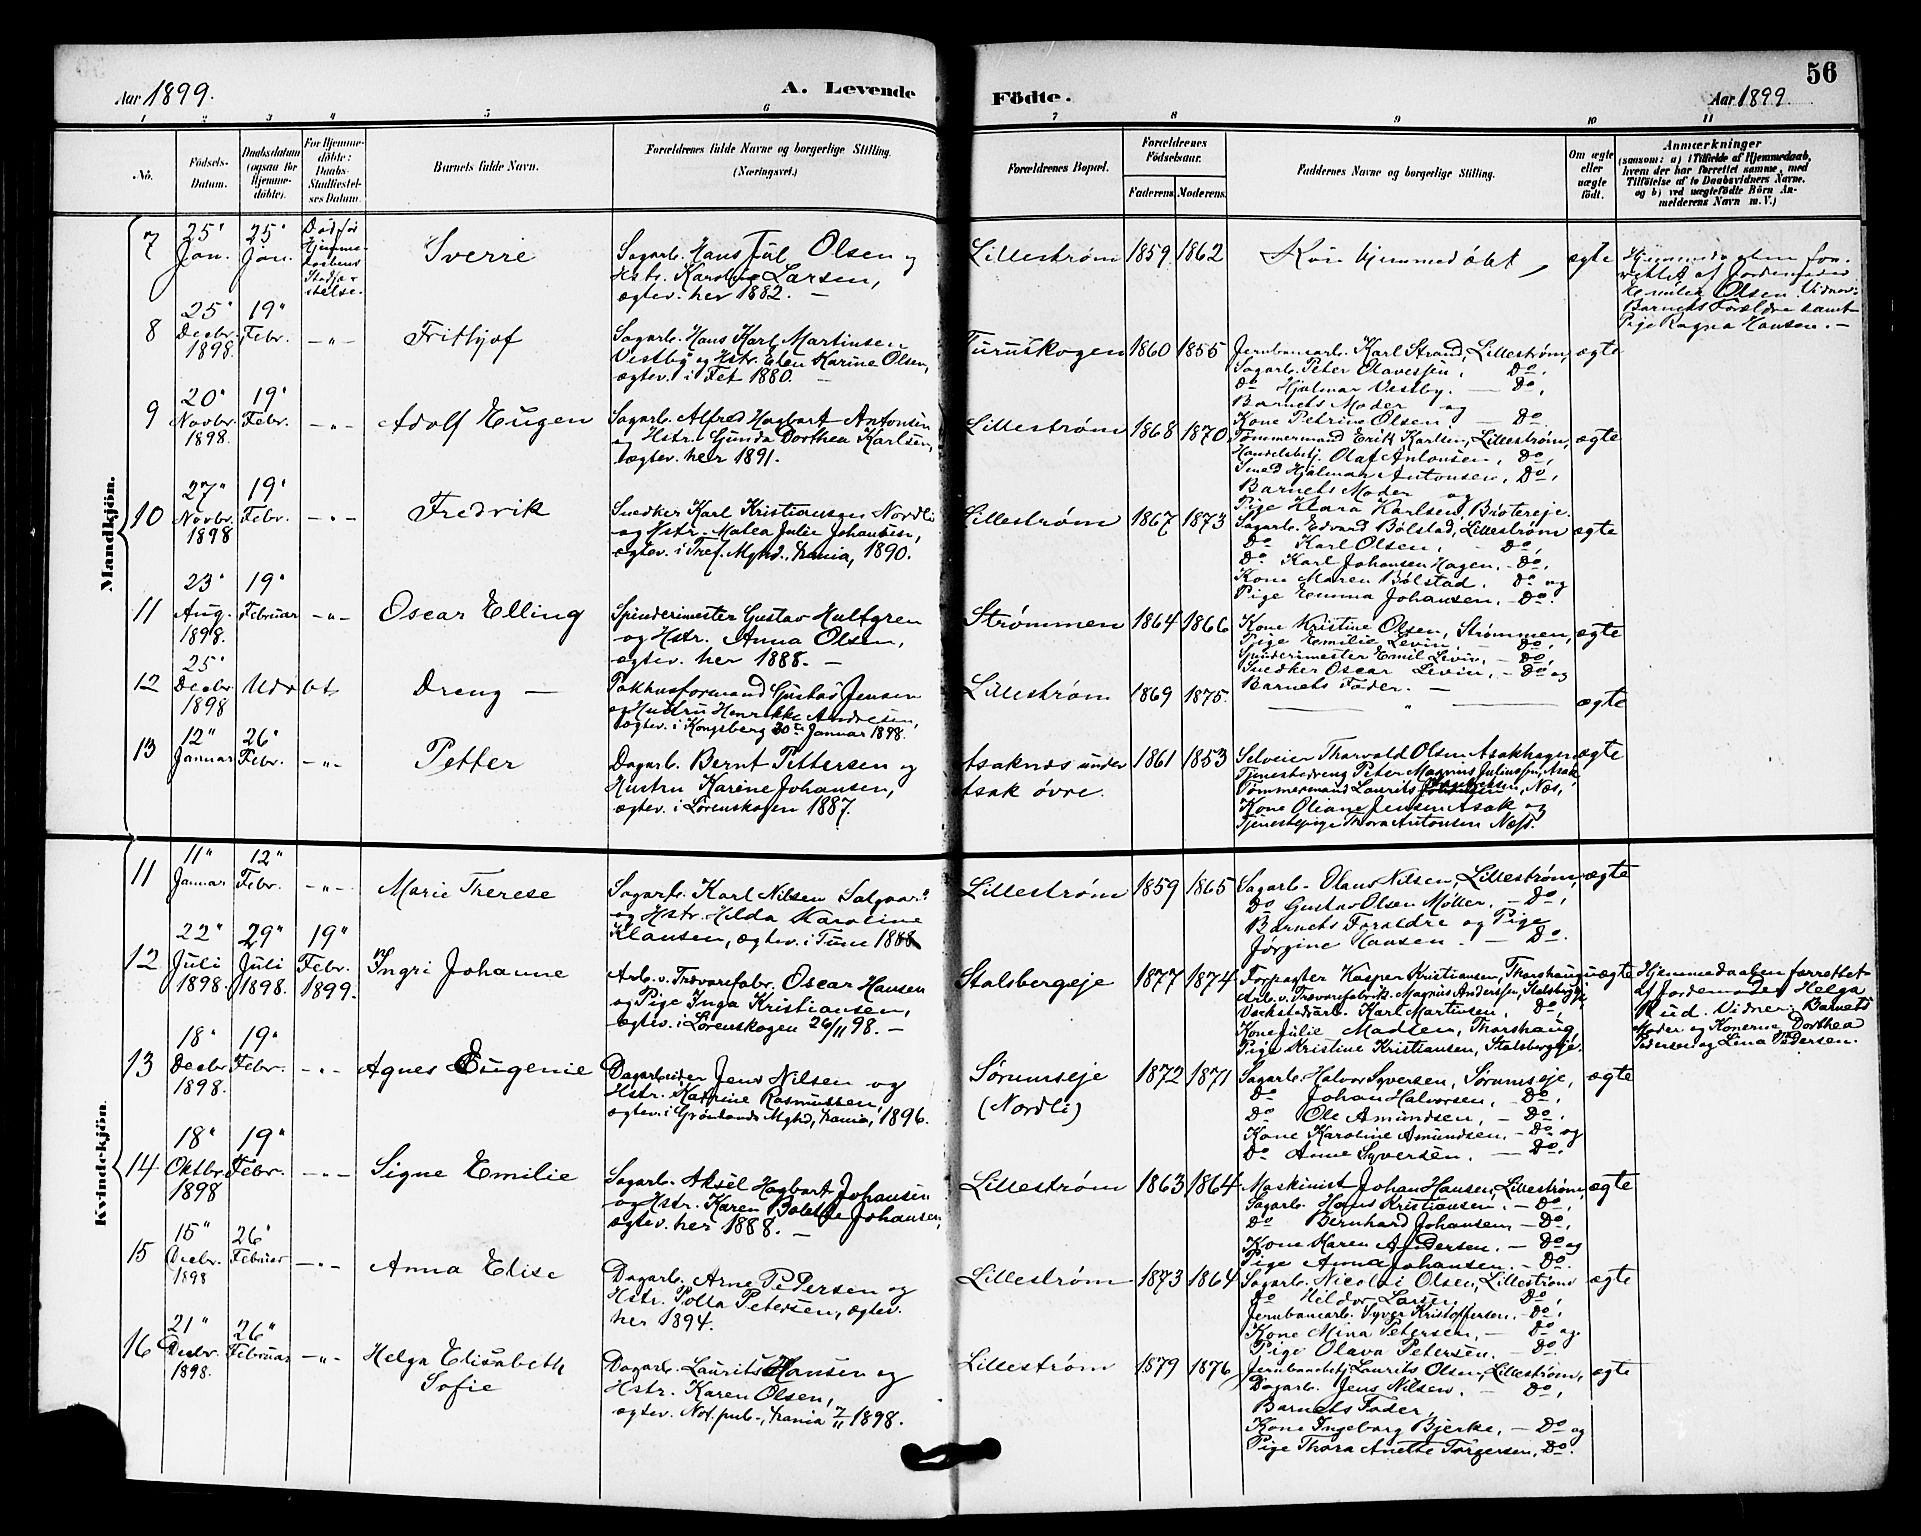 Aar 1899.
A. Levende
Födte.
56
Aar 1899
1 2 3 4 5 6 7 8 9 10 11
No.
Födsels-
Datum.
Daabsdatum
(ogsaa for
Hjemme-
döbte).
For Hjemme-
döbte:
Daabs-
Stadfæstel-
ses Datum.
Barnets fulde Navn.
Forældrenes fulde Navne og borgerlige Stilling.
(Næringsvei.)
Forældrenes Bopæl.
Forældrenes
Födselsaar.
Faderens.
Moderens.
Faddernes Navne og borgerlige Stilling.
Om ægte
eller
uægte
födt.
Anmærkninger
(saasom: a) i Tilfælde af Hjemmedaab,
hvem der har forrettet samme, med
Tilföielse af to Daabsvidners Navne,
og b) ved uægtefödte Börn An-
melderens Navn m. V.)
Mandkjön.
7
25"
Jan.
25"
Jan.
Död før
Hjemme-
daabens
Stadfæ-
stelse.
Sverre
Sagarb. Hans Jul Olsen og
Hstr. Karoline Larsen,
ægtev. her 1882. —
Lillestrøm
1859
1862
Kun hjemmedøbt
ægte
Hjemmedaaben for-
rettet af Jordemoder
Emilie Olsen. Vidner:
Barnets Forældre samt
Pige Ragna Hansen. —
8
25"
Decbr.
1898.
19"
Febr.
— " —
Frithjof
Sagarb. Hans Karl Martinsen
Vestby og Hstr. Elen Karine Olsen,
ægtev. i Fet 1880. —
Furuskogen
1860
1855
Jernbanearb. Karl Strand, Lillestrøm,
Sagarb. Peter Olavessen, Do,
Do Hjalmar Vestby. — Do,
Barnets Moder og
Kone Petrine Olsen — Do
ægte
9
20"
Novbr.
1898.
19"
Febr.
— " —
Adolf Eugen
Sagarb. Alfred Hagbart Antonsen
og Hstr. Gunda Dorthea Karlsen,
ægtev. her 1891.
Lillestrøm
1868
1870
Tømmermand Erik Karlsen, Lillestrøm,
Handelsbetj. Olaf Antonsen, Do,
Smed Hjalmar Antonsen, Do,
Barnets Moder og
Pige Klara Karlsen,
ægte
10
27"
Novbr.
1898
19"
Febr.
— " —
Fredrik
Snedker Karl Kristiansen Nordli
og Hstr. Matea Julie Johansen,
ægtev. i Tref. Mghd., Krania, 1890.
Lillestrøm
1867
1873
Sagarb. Edvard Bölstad, Lillestrøm
Do Karl Olsen, — Do,
Do Karl Johansen Hagen, — Do,
Kone Maren Bölstad. Do og
Pige Emma Johansen. — Do.
ægte
11
23"
Aug.
1898.
19"
Februar
— " —
Oscar Elling
Spinderimester Gustav Hultgren
og Hstr. Anna Olsen,
ægtev. her 1888. —
Strømmen
1864
1866
Kone Kristine Olsen, Strømmen,
Pige Emilie Levin, — Do,
Spinderimester Emil Levin, — Do,
Snedker Oscar Levin, — Do og
Barnets Fader. —
ægte
12
25"
Decbr.
1898
Udöbt
Dreng —
Pakhusformand Gustav Jensen
og Hustru Henrikke Andresen,
ægtev. i Kongsberg 30te Januar 1898.
Lillestrøm
1869
1875.
— " —
ægte
13
12"
Januar
26"
Febr.
— " —
Petter
Dagarb. Bernt Pettersen og
Hustru Karine Johansen,
ægtev. i Lørenskogen 1887.
Asaknæs under
Asak övre.
1861
1853
Selveier Tharvald Olsen Asakhagen
Tjenestedreng Peter Magnus Juliussen, Asak,
Tømmermand Laurits Næs,
Kone Oliane Jensen Asak og
Tjenestepige Thora Antonsen Næss.
ægte
Kvindekjön.
11
11"
Januar
12"
Febr.
— " —
Marie Therese
Sagarb. Karl Nilsen Salgaar
og Hstr. Hilda Karoline
Klausen, ægtev. i Tune 1888
Lillestrøm
1859
1865
Sagarb. Olaus Nilsen, Lillestrøm,
Do Gustav Olsen Møller. — Do,
Barnets Forældre og Pige
Jørgine Hansen. — Do.
ægte
12
22"
Juli
1898.
29"
Juli
1898.
19"
Febr.
1899.
Ingri Johanne
Arb. v. Trævarefabr. Oscar Hansen
og Pige Inga Kristiansen,
ægtev. i Lørenskogen 26/11 98. —
Stalsbergeje
1877
1874
Forpagter Kasper Kristiansen, Thorshaug
Arb. v. Trævarefabrik. Magnus Anderssen, Stalsbergeje,
Verkstedarb. Karl Martinsen, Do,
Kone Julie Madsen, Thorshaug,
Pige Kristine Kristiansen, Stalsbergeje.
uægte
Hjemmedaaben forrettet
af Jordemoder Helga
Rud. Vidner: Barnets
Moder og Konerne Dorthea
Pedersen og Lina Pedersen.
13
18"
Decbr.
1898.
19"
Febr.
— " —
Agnes Eugenie
Dagarbeider Jens Nilsen og
Hstr. Katrine Rasmussen,
ægtev. i Grønlands Mghd, Krania, 1896.
Sørumseje
(Nordli)
1872
1871
Sagarb. Halvor Syversen, Sørumseje,
Do Johan Halvorsen, — Do,
Do Ole Amundsen, — Do,
Kone Karoline Amundsen, — Do og
Do Anne Syversen. — Do.
ægte
14
18"
Oktbr.
1898
19"
Febr.
— " —
Signe Emilie
Sagarb. Aksel Hagbart Johansen
og Hstr. Karen Bolette Johansen,
ægtev. her 1888. —
Lillestrøm
1863
1864
Maskinist Johan Hansen, Lillestrøm,
Sagarb. Hans Kristiansen. — Do,
Do Bernhard Johansen, — Do,
Kone Karen Andersen. — Do og
Pige Anna Johansen. — Do.
ægte
15
15"
Decbr.
1898
26"
Februar
— " —
Anna Elise
Dagarb. Arne Pedersen og
Hstr. Polla Petersen, ægtev.
her 1894.
Lillestrøm
1873
1864
Sagarb. Nicolai Olsen, Lillestrøm
Do Hildor Larsen Do,
Jernbanearb. Syver Kristoffersen. — Do,
Kone Mina Petersen, — Do og
Pige Olava Petersen. — Do.
ægte
16
21"
Decbr.
1898.
26"
Februar
— " —
Helga Elisabeth
Sofie
Dagarb. Laurits Hansen og
Hstr. Karen Olsen,
ægtev. Not. pub., Krania 7/11 1898.
Lillestrøm
1879
1876
Jernbanebetj. Laurits Olsen, Lillestrøm,
Dagarb. Jens Nilsen. — Do,
Barnets Fader,
Kone Ingeborg Bjerke, — Do og
Pige Thora Anette Torgersen, Do.
ægte